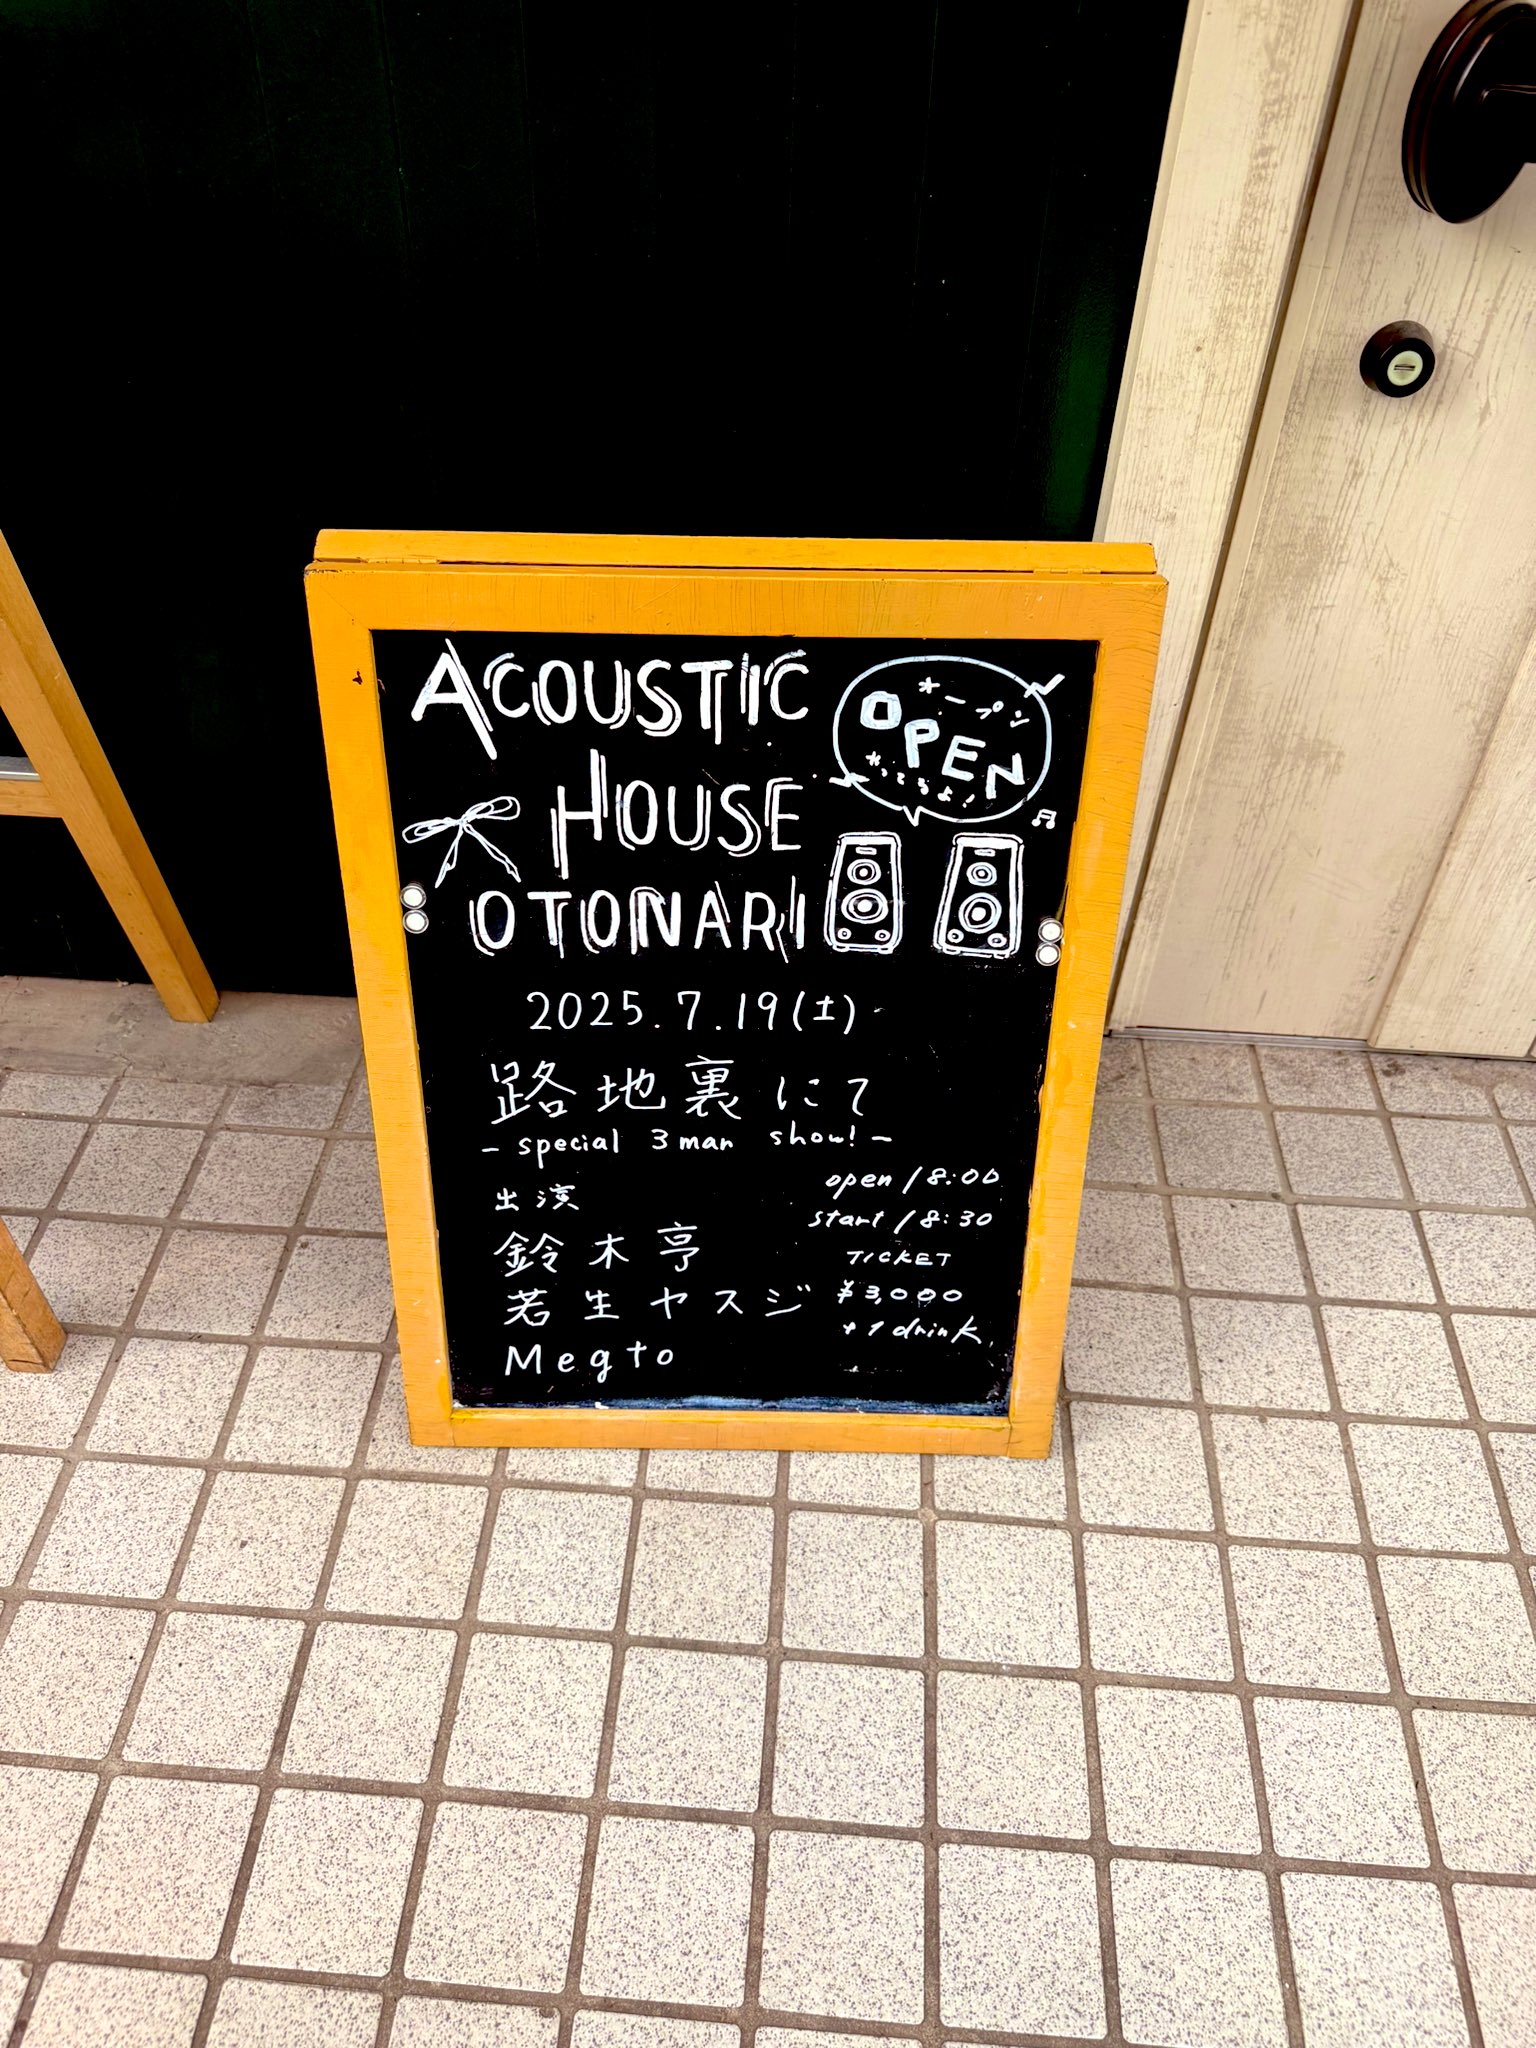 ACOUSTIC
HOUSE
OTONARI
オープン
OPEN
やってるよ!
2025.7.19(土)
路地裏にて
- special 3man show! -
出演
鈴木亨
若生ヤスジ
Megto
open 18:00
start 18:30
TICKET
¥3,000
+1drink